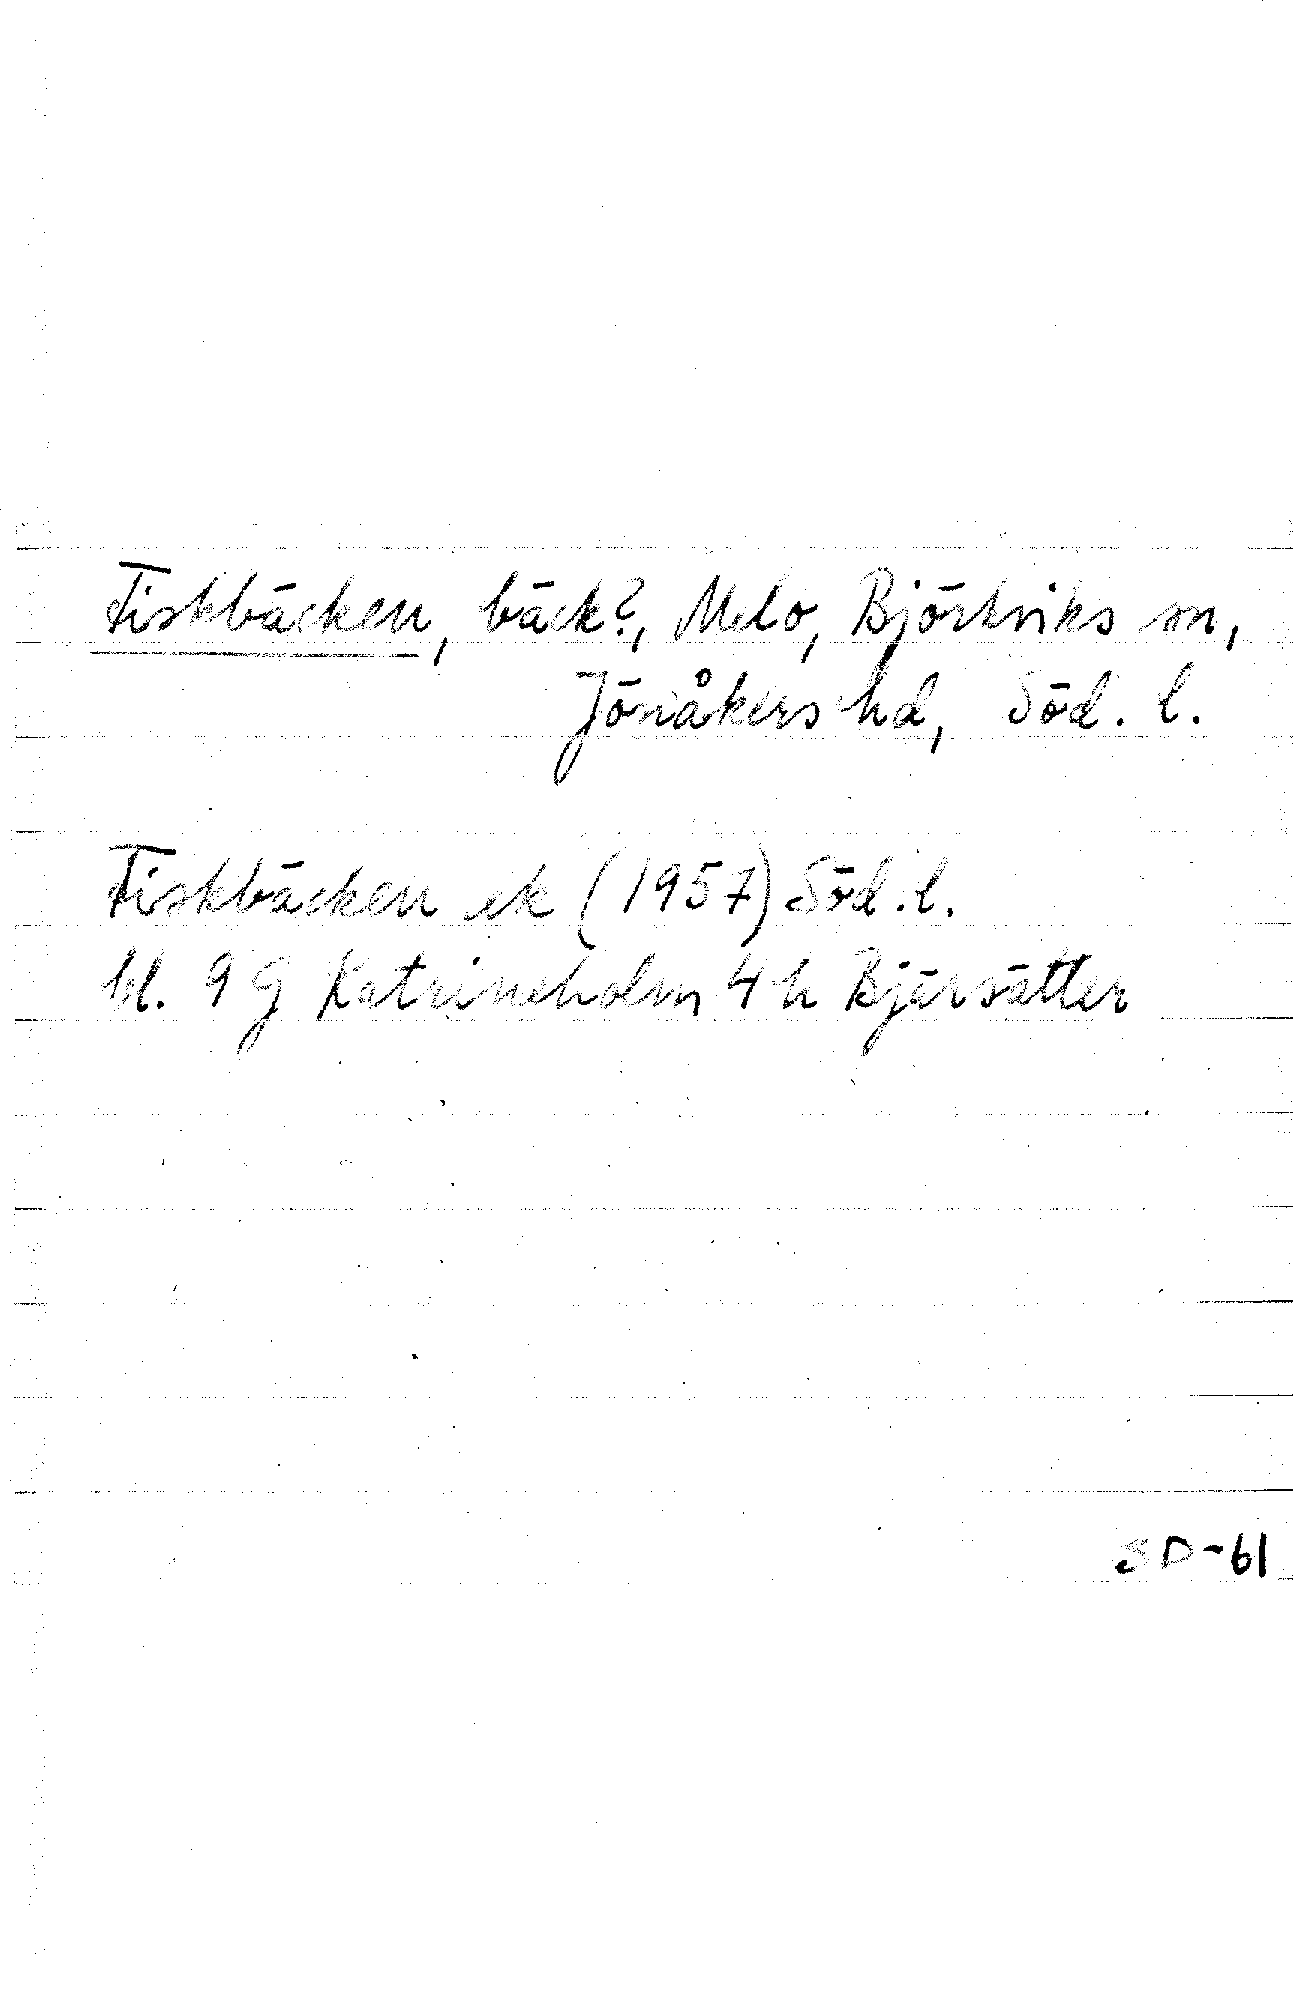 Fiskbäcken, bäck?, Melo, Björkviks sn,
Jönåkers hd, Söd. l.
Fiskbäcken ek (1957) Söd. l.
bl. 9 G Katrineholm 4 h Bjärsätter
SD-61